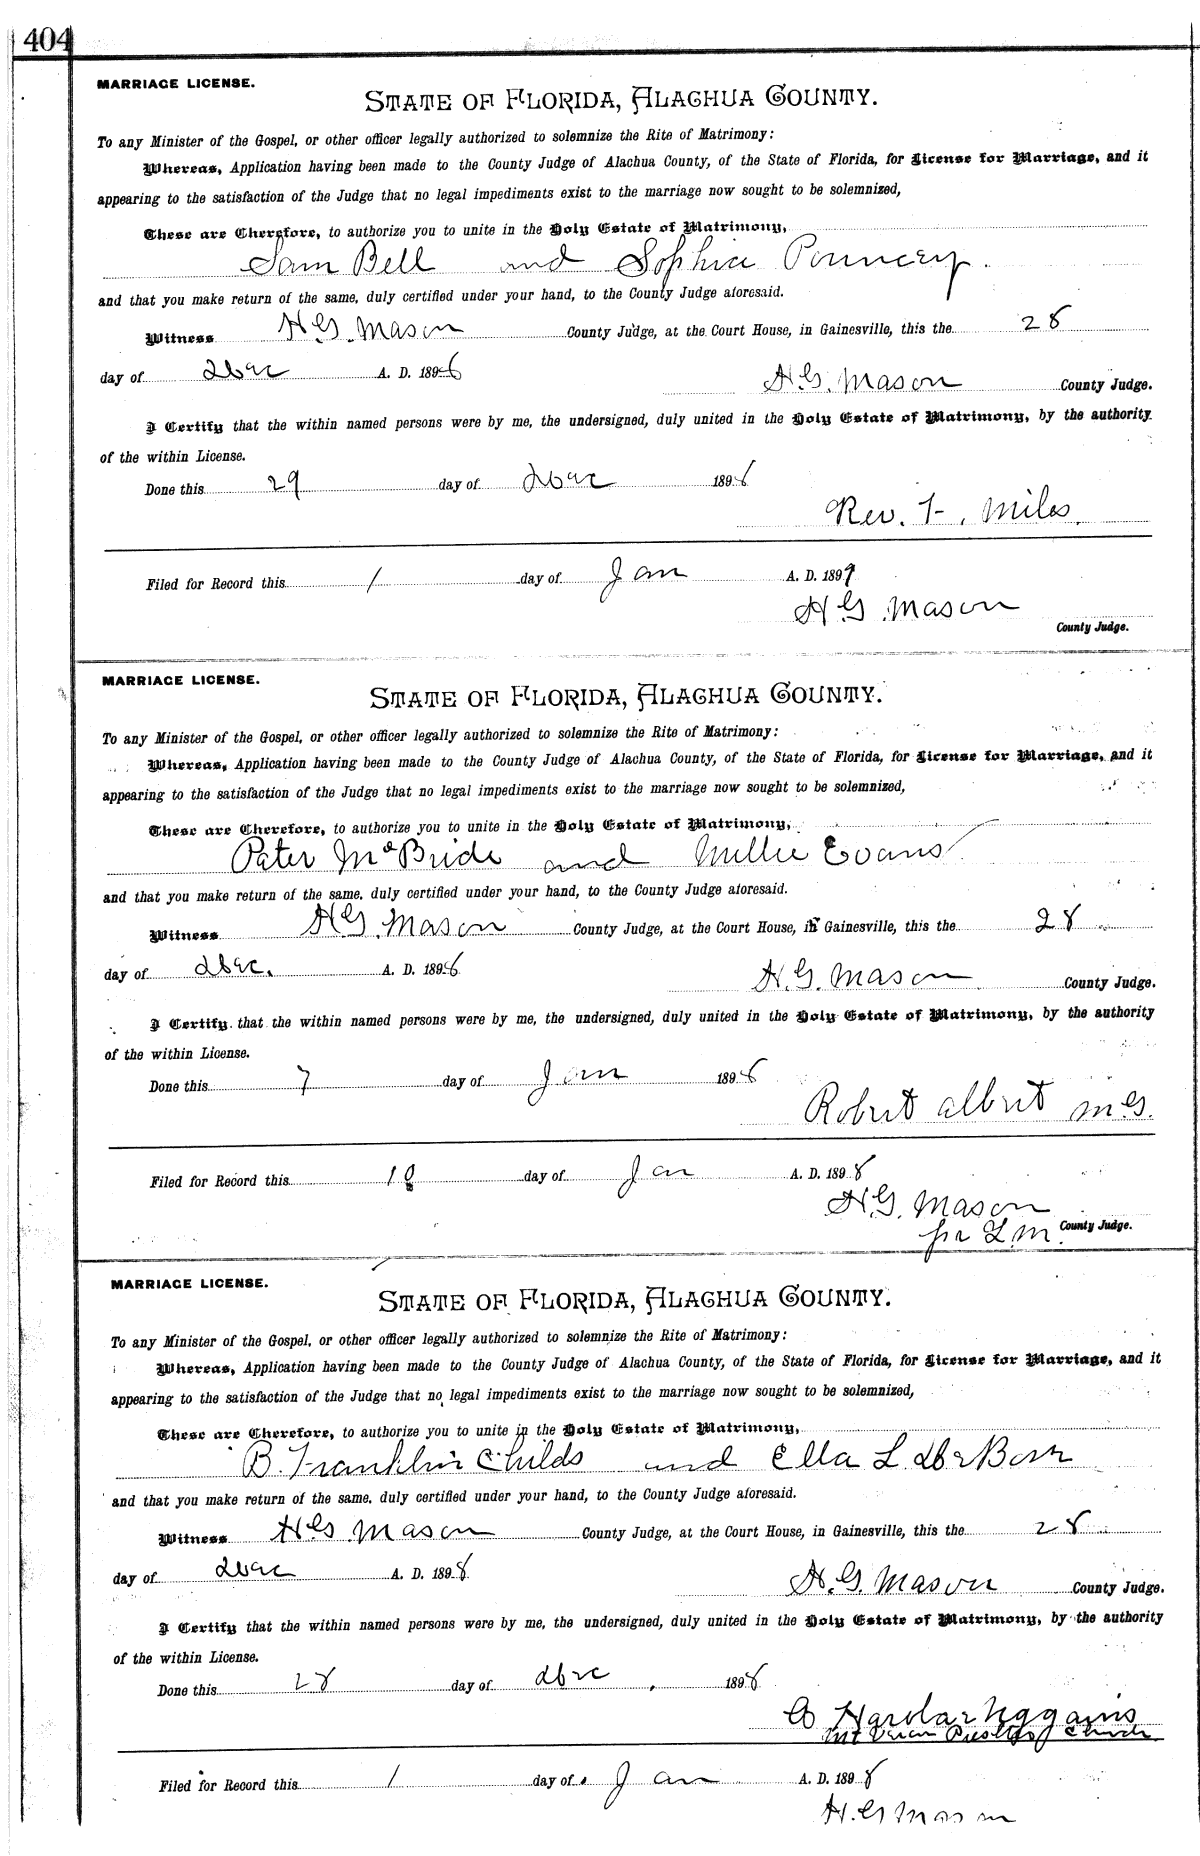 404
MARRIAGE LICENSE.
STATE OF FLORIDA, ALACHUA COUNTY.
To any Minister of the Gospel, or other officer legally authorized to solemnize the Rite of Matrimony:
Whereas, Application having been made to the County Judge of Alachua County, of the State of Florida, for License for Marriage, and it
appearing to the satisfaction of the Judge that no legal impediments exist to the marriage now sought to be solemnized,
These are Therefore, to authorize you to unite in the Holy Estate of Matrimony,
Sam Bell and Sophia Pouncey.
and that you make return of the same, duly certified under your hand, to the County Judge aforesaid.
Witness H.G. Mason County Judge, at the Court House, in Gainesville, this the 28
day of Dec A. D. 1898
H.G. Mason County Judge.
I Certify that the within named persons were by me, the undersigned, duly united in the Holy Estate of Matrimony, by the authority
of the within License.
Done this 29 day of Dec 1898
Rev. F. Miles.
Filed for Record this 1 day of Jan A. D. 1899
H.G. Mason
County Judge.
MARRIAGE LICENSE.
STATE OF FLORIDA, ALACHUA COUNTY.
To any Minister of the Gospel, or other officer legally authorized to solemnize the Rite of Matrimony:
Whereas, Application having been made to the County Judge of Alachua County, of the State of Florida, for License for Marriage, and it
appearing to the satisfaction of the Judge that no legal impediments exist to the marriage now sought to be solemnized,
These are Therefore, to authorize you to unite in the Holy Estate of Matrimony,
Peter McBride and Millie Evans
and that you make return of the same, duly certified under your hand, to the County Judge aforesaid.
Witness H.G. Mason County Judge, at the Court House, in Gainesville, this the 28
day of Dec. A. D. 1898
H.G. Mason County Judge.
I Certify that the within named persons were by me, the undersigned, duly united in the Holy Estate of Matrimony, by the authority
of the within License.
Done this 7 day of Jan 1898
Robert Albert M.G.
Filed for Record this 10 day of Jan A. D. 1898
H.G. Mason
pr L.M. County Judge.
MARRIAGE LICENSE.
STATE OF FLORIDA, ALACHUA COUNTY.
To any Minister of the Gospel, or other officer legally authorized to solemnize the Rite of Matrimony:
Whereas, Application having been made to the County Judge of Alachua County, of the State of Florida, for License for Marriage, and it
appearing to the satisfaction of the Judge that no legal impediments exist to the marriage now sought to be solemnized,
These are Therefore, to authorize you to unite in the Holy Estate of Matrimony,
B. Franklin Childs and Ella L.
and that you make return of the same, duly certified under your hand, to the County Judge aforesaid.
Witness H.G. Mason County Judge, at the Court House, in Gainesville, this the 28
day of Dec A. D. 1898
H.G. Mason County Judge.
I Certify that the within named persons were by me, the undersigned, duly united in the Holy Estate of Matrimony, by the authority
of the within License.
Done this 28 day of Dec, 1898
Church
Filed for Record this 1 day of Jan A. D. 1898
H.G. Mason